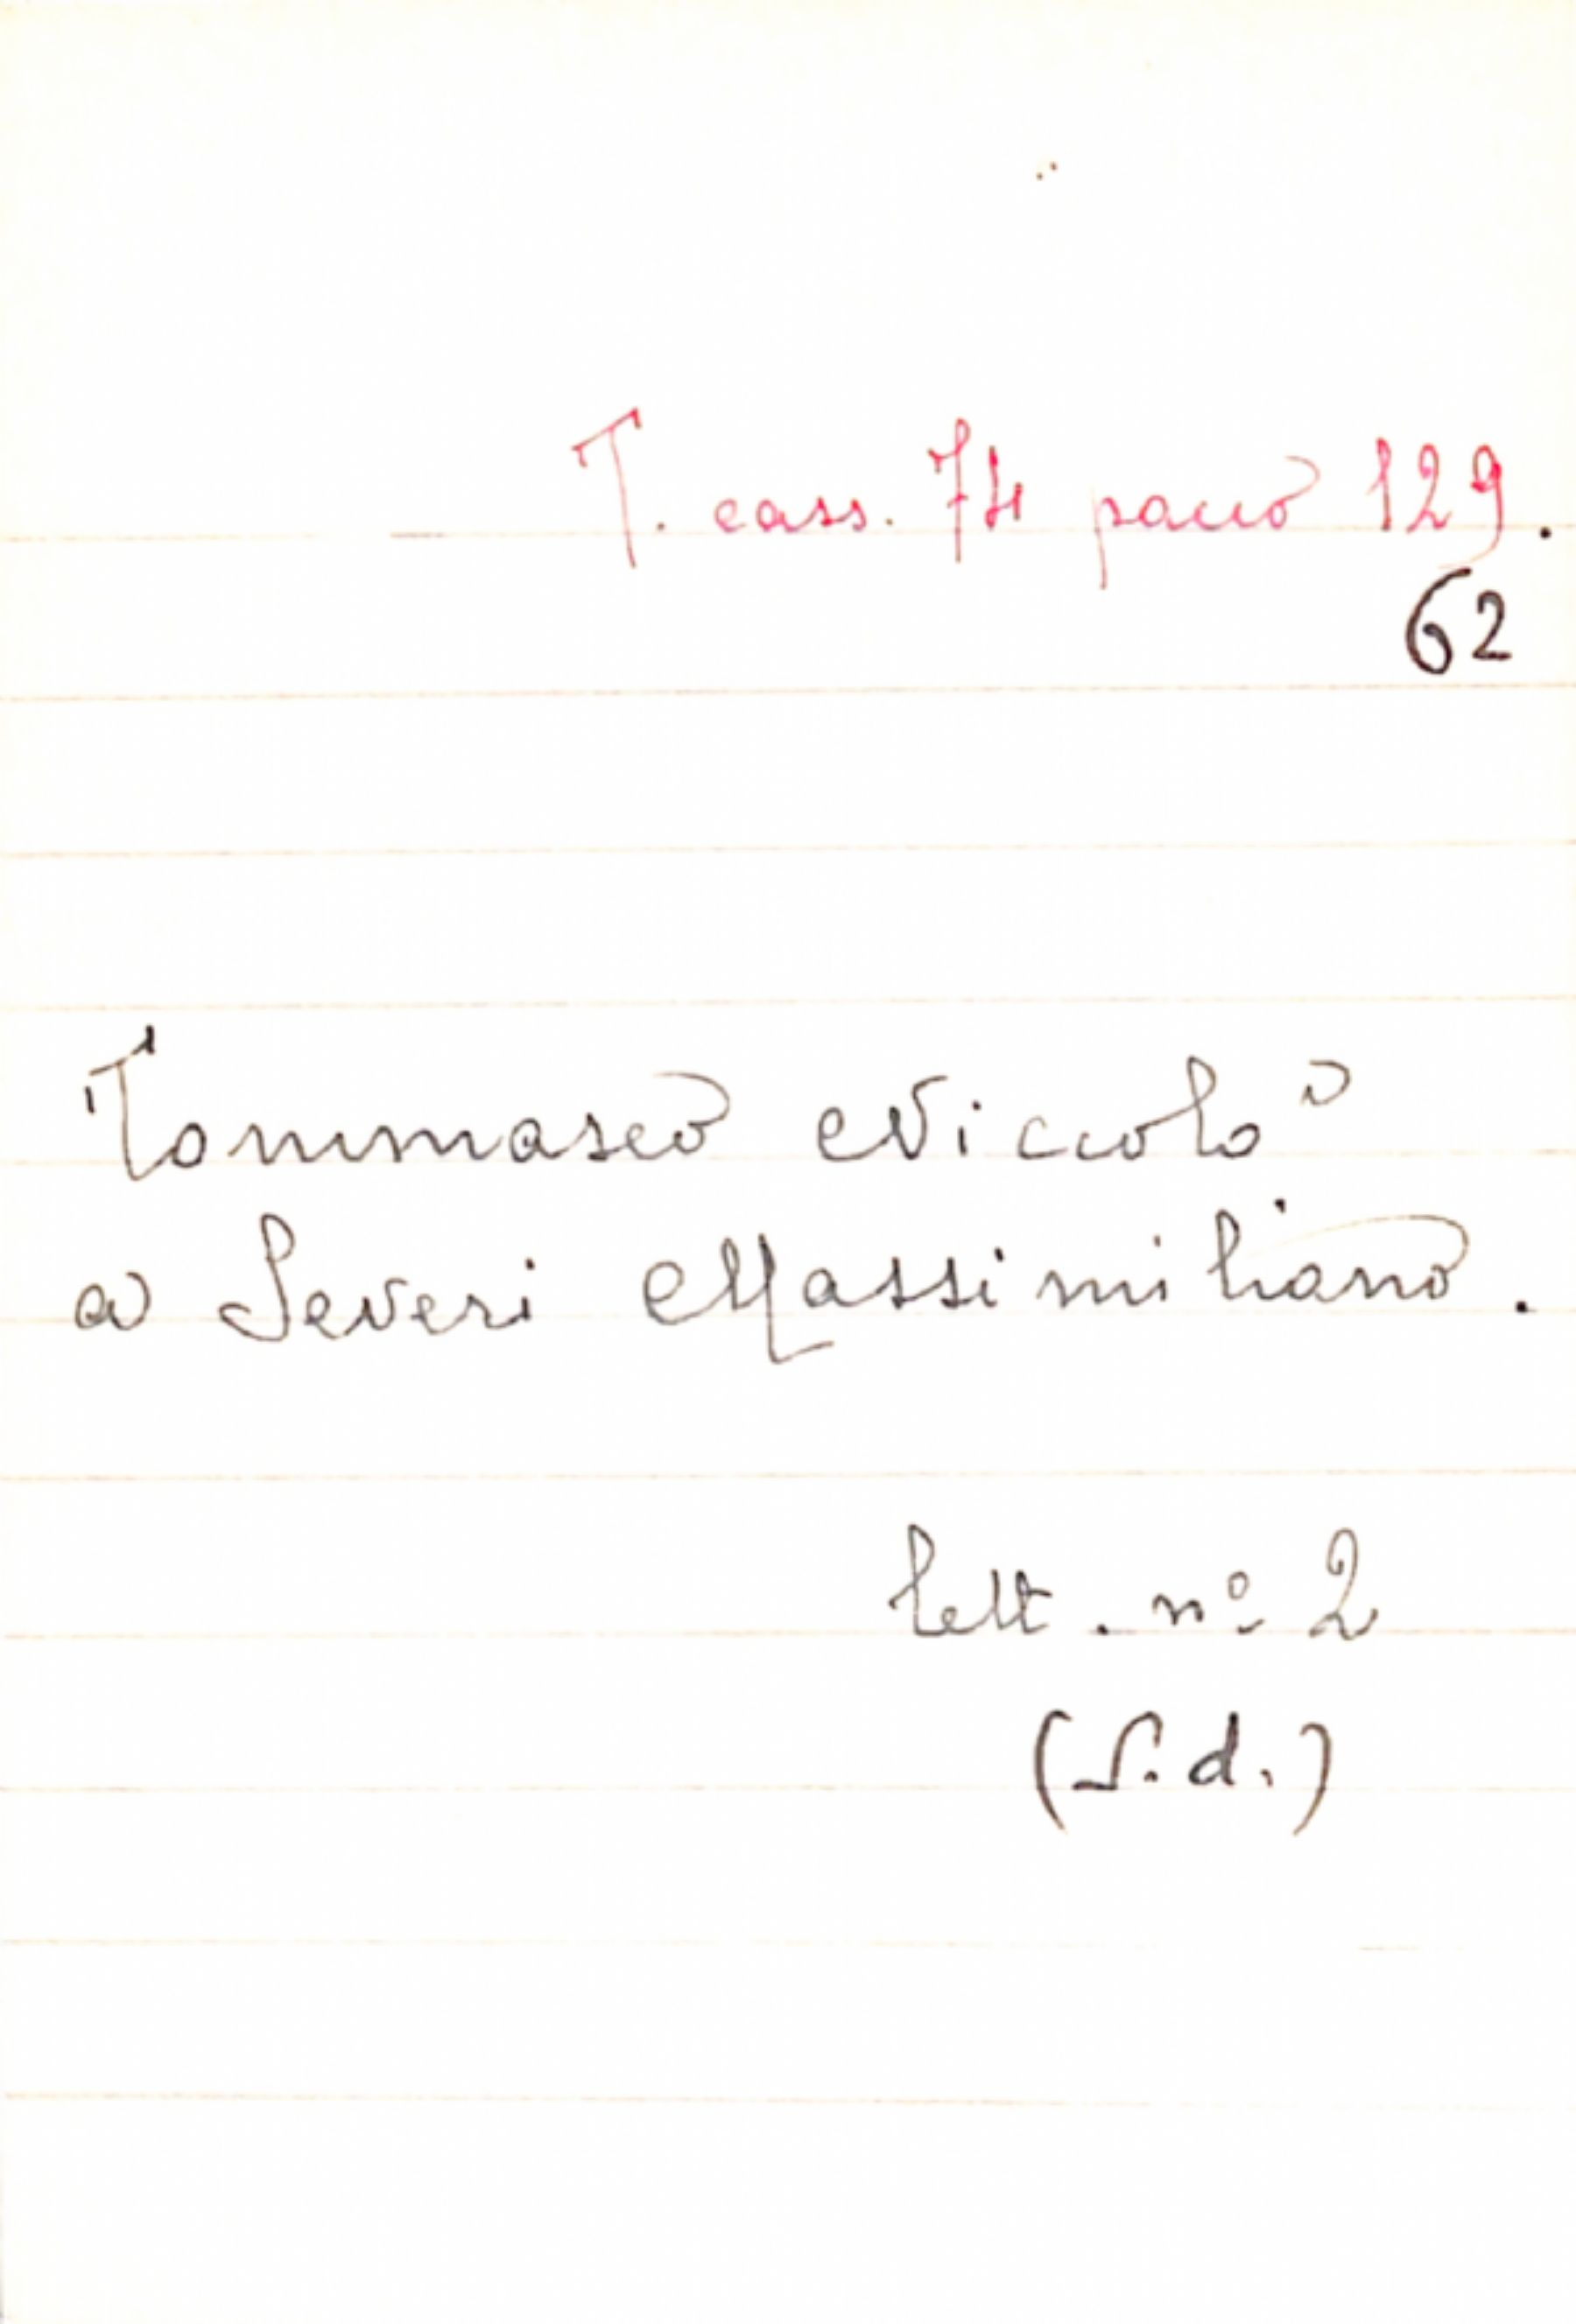 T. cass. 74 pacco 129.
62
Tommaseo Niccolò
a Severi Massimiliano.
lett. nº 2
(S.d.)